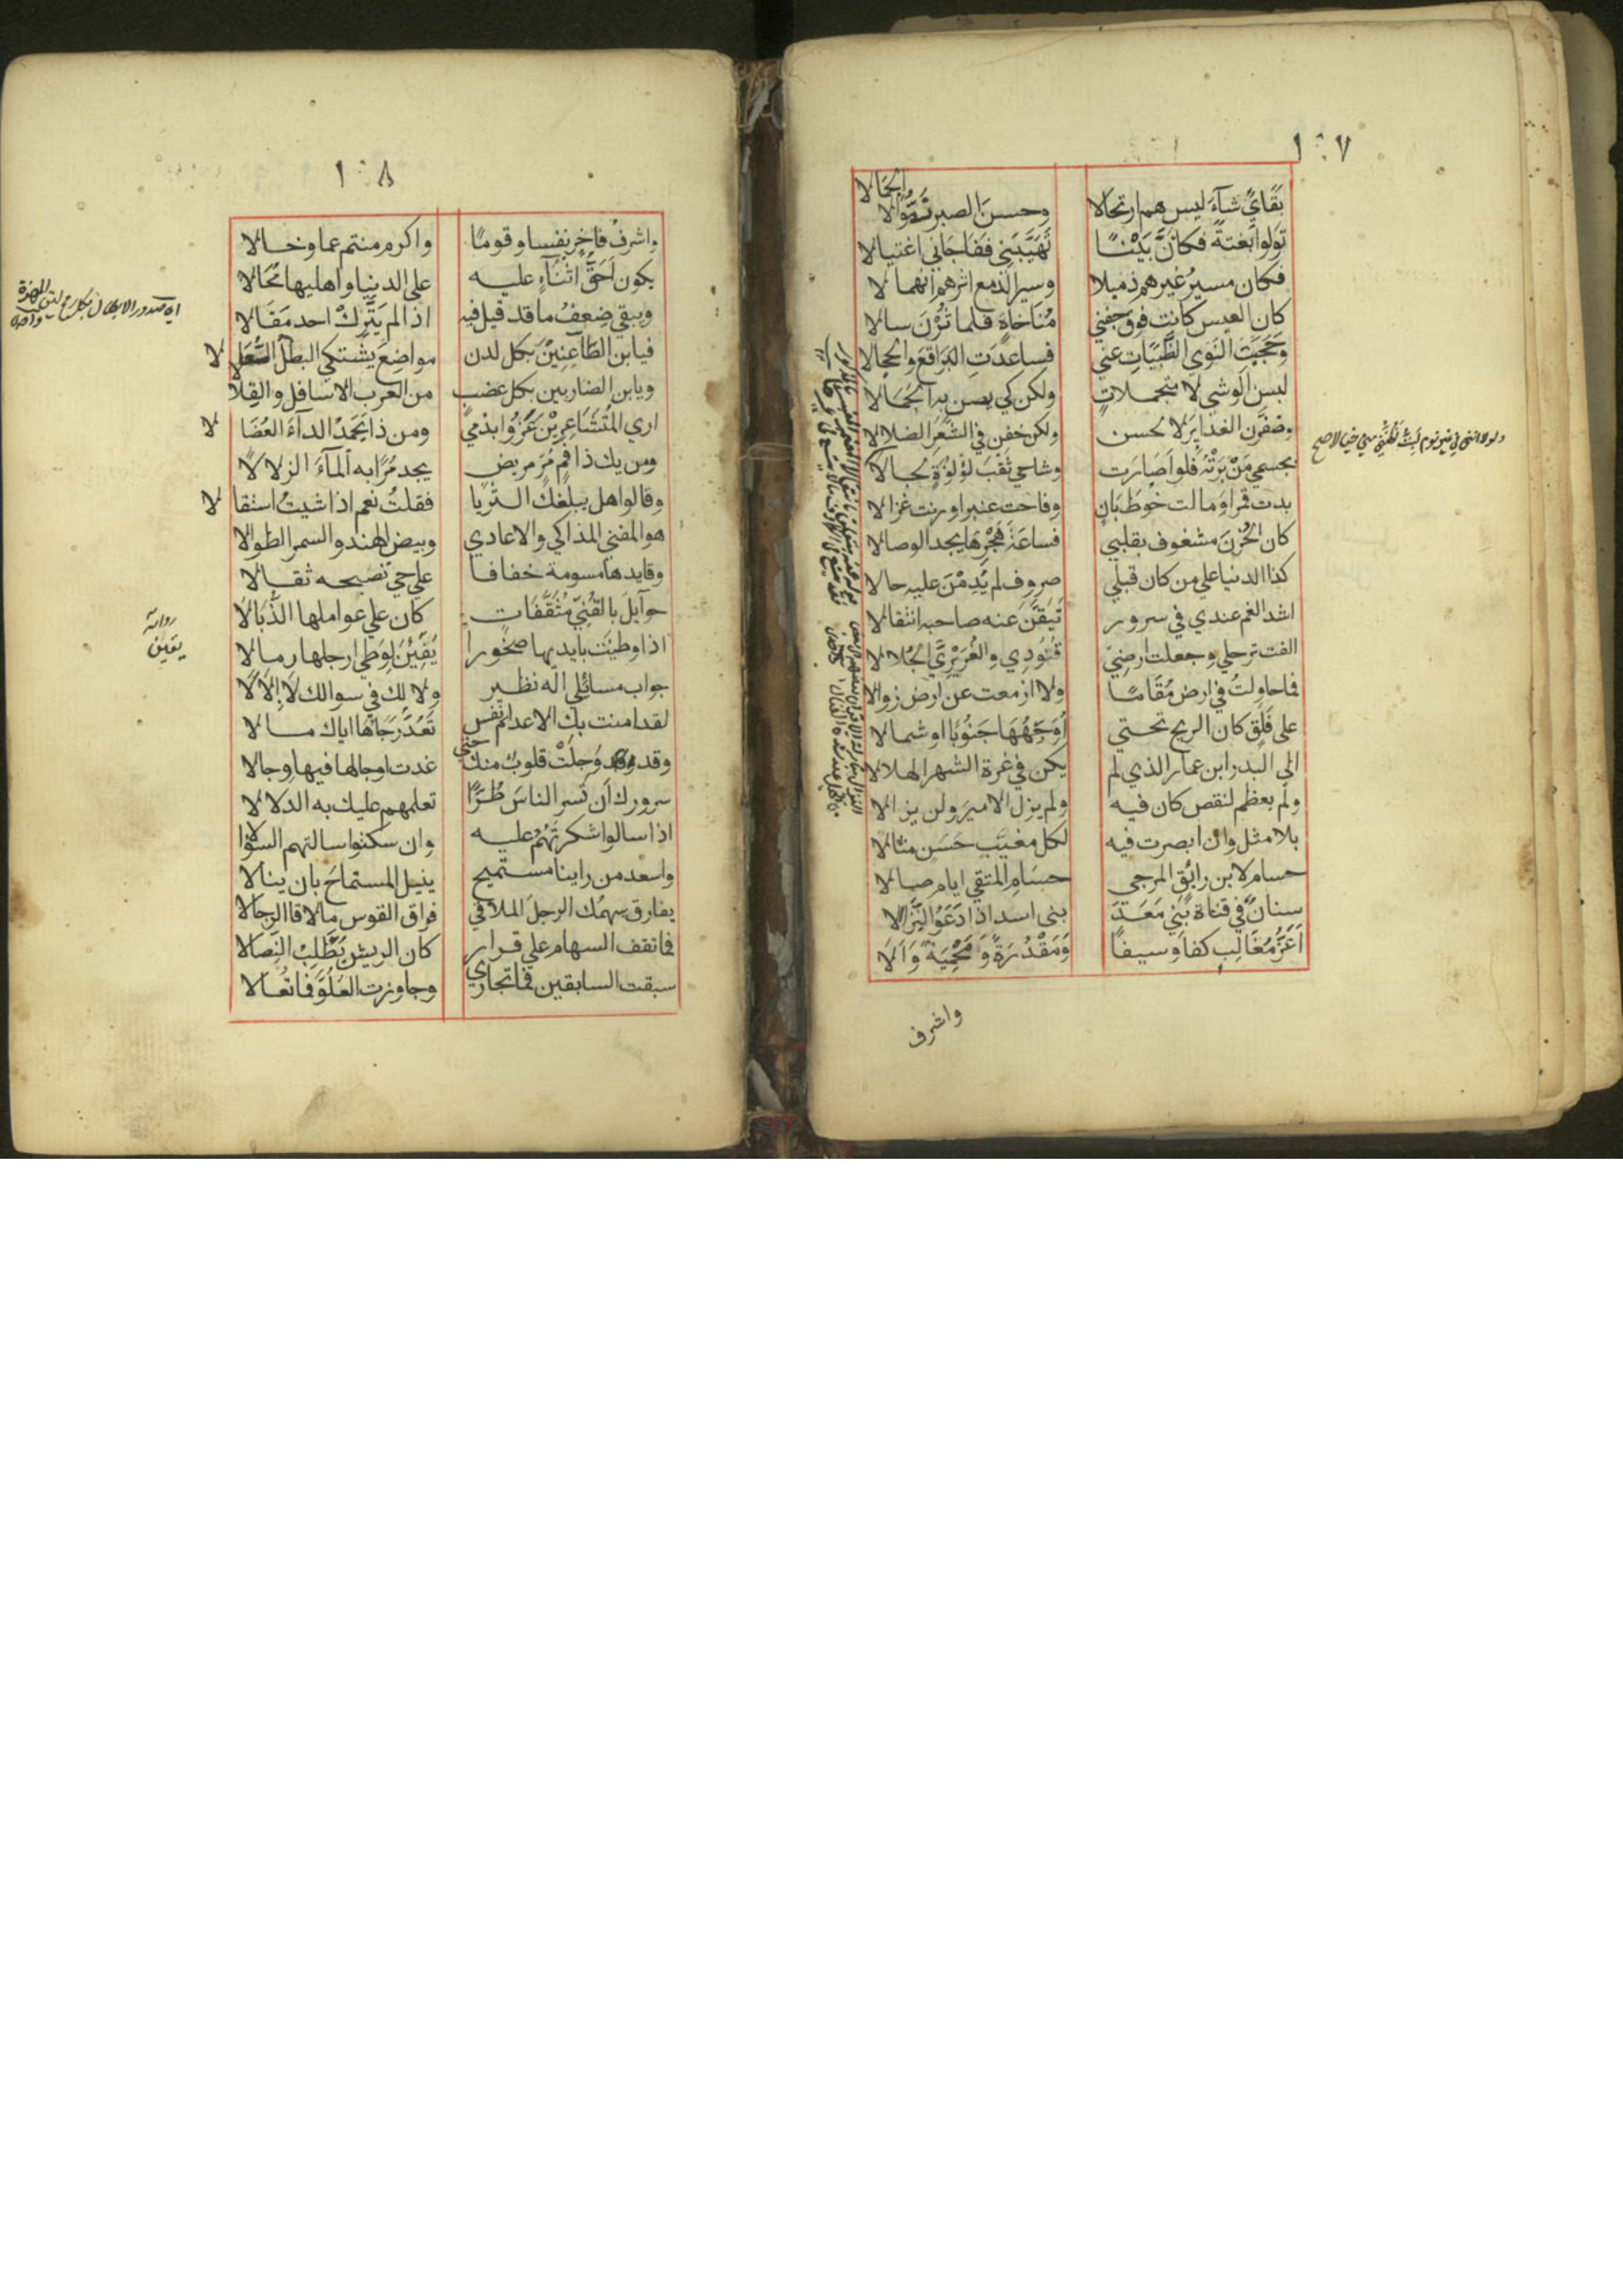 ١٠٧
بقاي شآء ليس هم ارتحالا وحسن الصبر زموا لا الجمالا
تولوا بغتة فكان بينا تهيبني ففاجاني اغتيالا
فكان مسير غيرهم ذميلا وسير الدمع اثرهم انهمالا
كان العيس كانت فوق جفني مناخاة فلما ثرن سالا
وحجبت النوي الظبيات عني فساعدت البراقع والحجالا
لبسن الوشي لا متجملات ولكن كي يصن به الجمالا
وضفرن الغداير لا لحسن ولكن خفن في الشعر الضلالا
بجسمي من برته فلو اصارت وشاحي ثقب لؤلؤة لجالا
ولولا انني في غير نوم لبت اظنني مني خيالا صح
بدت قمرا ومالت خوط بان وفاحت عنبرا ورنت غزالا
كان الحزن مشغوف بقلبي فساعة هجرها يجد الوصالا
كذا الدنيا علي من كان قبلي صروف لم يدمن عليه حالا
اشد الغم عندي في سرور تيقن عنه صاحبه انتقالا
الفت ترحلي وجعلت ارضي قتودي والغريري الجلالا
فما حاولت في ارض مقاما ولا ازمعت عن ارض زوالا
على قلق كان الريح تحتي اوجهها جنوبا او شمالا
الي البدر ابن عمار الذي لم يكن في غرة الشهر الهلالا
ولم يعظم لنقص كان فيه ولم يزل الامير ولن يزالا
بلا مثل وان ابصرت فيه لكل مغيب حسن مثالا
حسام لابن رايق المرجى حسام المتقي ايام صالا
سنان في قناة بني معد بني اسد اذا دعوا النزالا
اعز مغالب كفا وسيفا ومقدرة ومحمية والا
واشرف
١٠٨
واشرف فاخر نفسا وقوما واكرم منتم عما وخالا
يكون احق اثنآء عليه علي الدنيا واهليها محالا
ويبقي ضعف ما قد قيل فيه اذا لم يترك احد مقالا
فيابن الطاعنين بكل لدن مواضع يشتكي البطل السعالا
ويابن الضاربين بكل عضب من العرب الاسافل والقلا
اري المتشاعرين غروا بذمي ومن ذا يحمد الدآء العضالا
ومن يك ذا فم مر مريض يجد مرا به المآء الزلالا
وقالوا هل يبلغك الثريا فقلت نعم اذا شيت استفالا
هو المفني المذاكي والاعادي وبيض الهند والسمر الطوالا
وقايدها مسومة خفافا علي حي تصبحه ثقالا
جوآيل بالقني مثقفات كان علي عواملها الذبالا
اذا وطيت بايديها صخورا يفئن لوطي ارجلها رمالا
رواية
يقين
جواب مسائلي اله نظير ولا لك في سوالك لا الا لا
لقد امنت بك الاعدام نفس تعد رجآها اياك مالا
وقد وجلت قلوب منك حتي غدت اوجالها فيها وجالا
سرورك ان تسر الناس طرا تعلمهم عليك به الدلالا
اذا سالوا شكرتهم عليه وان سكتوا سالتهم السؤالا
واسعد من راينا مستميح ينيل المستماح بان ينالا
يفارق سهمك الرجل الملاقي فراق القوس ما لاقا الرجالا
فما تقف السهام علي قرار كان الريش يطلب النصالا
سبقت السابقين فما تجاري وجاوزت العلو فما تعالا